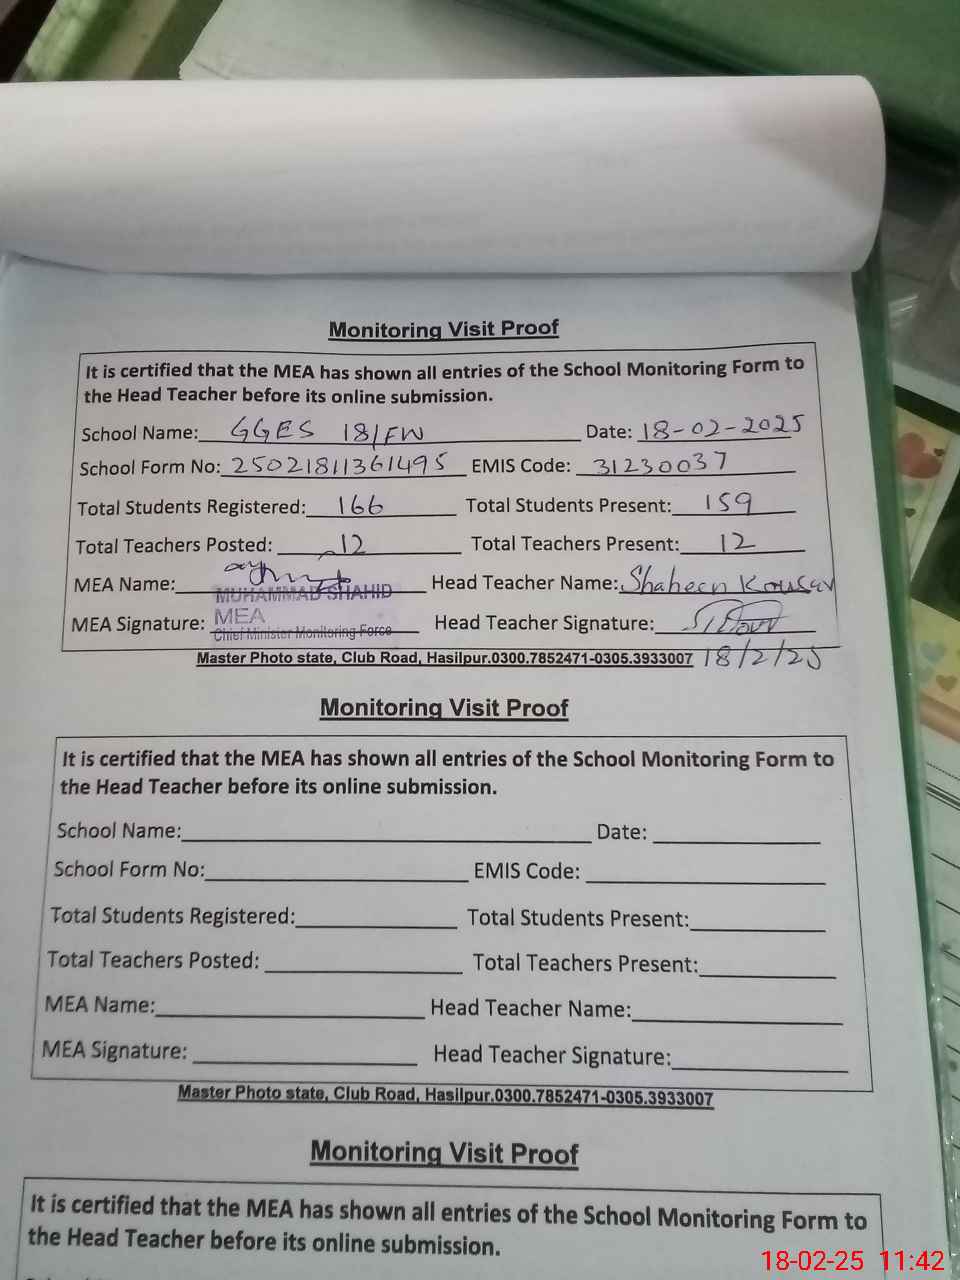 Monitoring Visit Proof
It is certified that the MEA has shown all entries of the School Monitoring Form to
the Head Teacher before its online submission.
School Name: GGES 18/FW Date: 18-02-2025
School Form No: 25021811361495 EMIS Code: 31230037
Total Students Registered: 166 Total Students Present: 159
Total Teachers Posted: 12 Total Teachers Present: 12
MEA Name: MUHAMMAD SHAHID Head Teacher Name: Shaheen Kousar
MEA Signature: MEA Head Teacher Signature:
Chief Minister Monitoring Force
Master Photo state, Club Road, Hasilpur.0300.7852471-0305.3933007 18/2/25
Monitoring Visit Proof
It is certified that the MEA has shown all entries of the School Monitoring Form to
the Head Teacher before its online submission.
School Name: Date:
School Form No: EMIS Code:
Total Students Registered: Total Students Present:
Total Teachers Posted: Total Teachers Present:
MEA Name: Head Teacher Name:
MEA Signature: Head Teacher Signature:
Master Photo state, Club Road, Hasilpur.0300.7852471-0305.3933007
Monitoring Visit Proof
It is certified that the MEA has shown all entries of the School Monitoring Form to
the Head Teacher before its online submission.
18-02-25 11:42